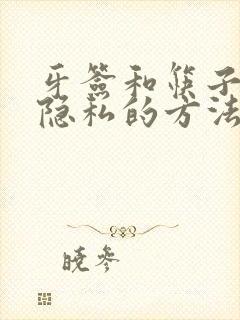 牙签和筷子
隐私的方法
晓参